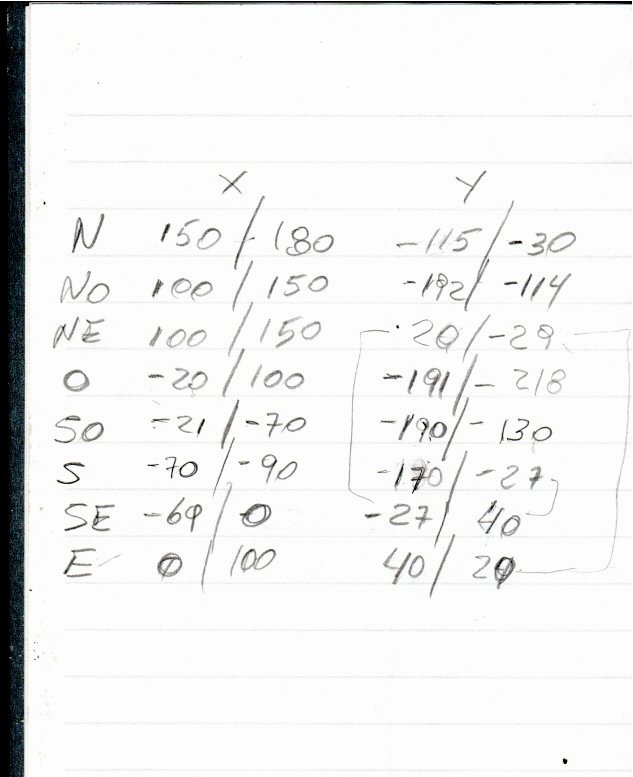 X Y
N 150 / 180 -115 / -30
NO 100 / 150 -192 / -114
NE 100 / 150 20 / -29
O -20 / 100 -191 / -218
SO -21 / -70 -190 / -130
S -70 / -90 -170 / -27
SE -69 / 0 -27 / 40
E 0 / 100 40 / 20